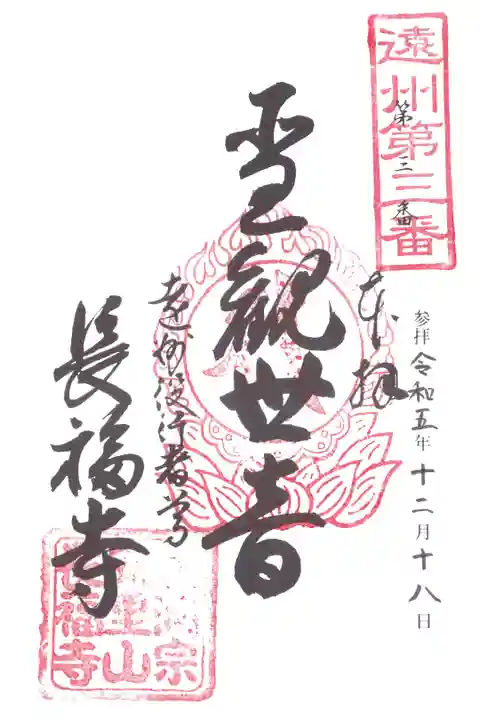 遠州第三番
第三番
参拝 令和五年十二月十八日
奉拝
聖観世音
遠州役行者
長福寺
宗
山
長福寺